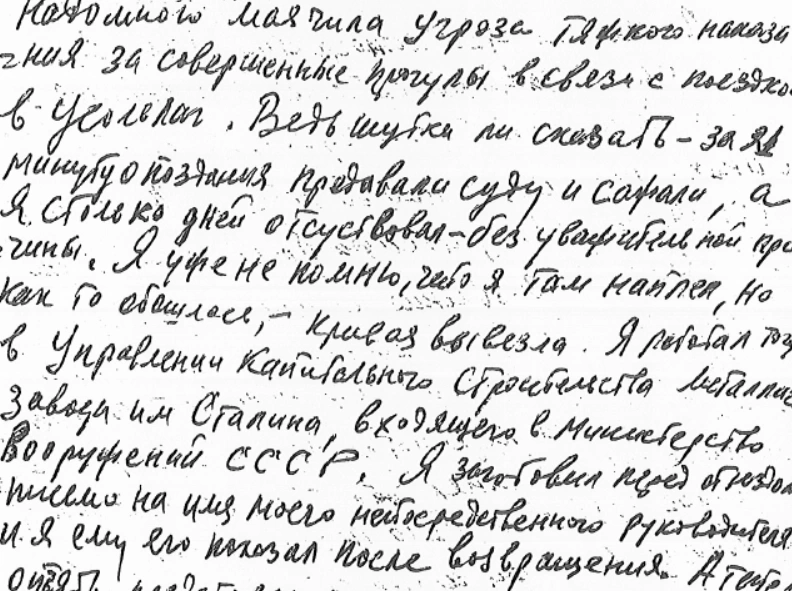 надо мною маячила угроза тяжкого наказа
-ния за совершенные прогулы в связи с поездко
в Усольлаг. Ведь шутка ли сказать - за 21
минуту опоздания предавали суду и сажали, а
я столько дней отсуствовал - без уважительной при
-чины. Я уже не помню, что я там наплел, но
как то обошлось, - кривая вывезла. Я работал тог
в Управлении Капитального Строительства Металлич
завода им Сталина, входящего в Министерство
Вооружений СССР. Я заготовил перед отъездом
письмо на имя моего непосредственного руководителя
и я ему его показал после возвращения. А тепе
опять